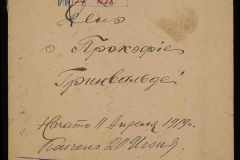 Дело
о Прокофіе
Гринвальде
Начато 11 Апреля 1919 г.
Кончено 20 Июня